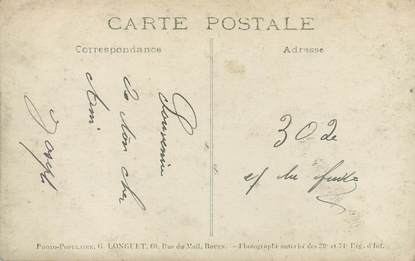 CARTE POSTALE
Correspondance
Adresse
Souvenir
de Mon cher
Ami
Joseph
302
Photo-Populaire, G. LONGUET, 60, Rue du Mail, Rouen. - Photographe autorisé des 28e et 74e Rég. d'Inf.